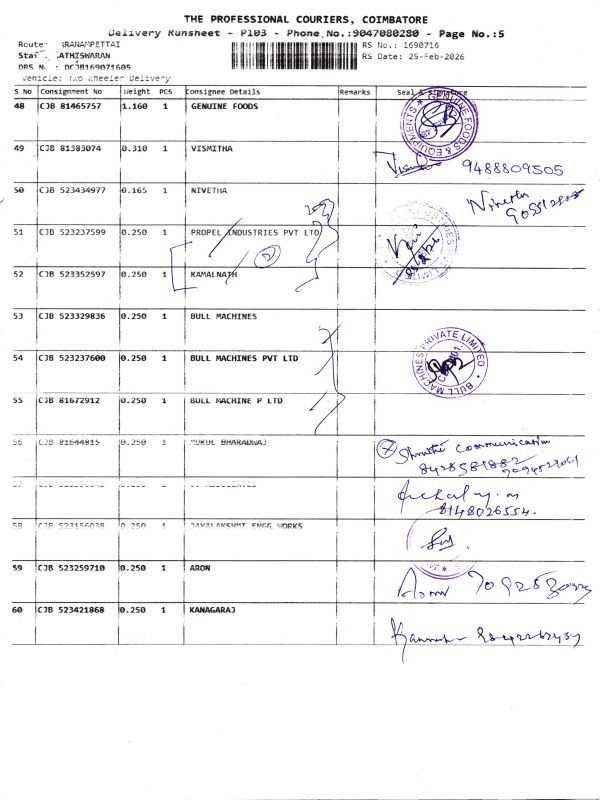 THE PROFESSIONAL COURIERS, COIMBATORE
Delivery Runsheet - P103 - Phone No.:9047080280 - Page No.:5
Route: RANAMPETTAI
RS No.: 1690716
ATHISWARAN
RS Date: 25-Feb-2026
DRS N : DCJB169071605
Vehicle: Two Wheeler Delivery
S No Consignment No Weight PCS Consignee Details Remarks Seal & Signature
48 CJB 81465757 1.160 1 GENUINE FOODS
GENUINE FOODS & EQUIPMENTS
49 CJB 81383074 0.310 1 VISMITHA
9488809505
50 CJB 523434977 0.165 1 NIVETHA
Nivetha
51 CJB 523237599 0.250 1 PROPEL INDUSTRIES PVT LTD
INDUSTRIES LIMITED
2
52 CJB 523352597 0.250 1 KAMALNATH
53 CJB 523329836 0.250 1 BULL MACHINES
54 CJB 523237600 0.250 1 BULL MACHINES PVT LTD
BULL MACHINES PRIVATE LIMITED
55 CJB 81672912 0.250 1 BULL MACHINE P LTD
56 CJB 81644815 0.250 1 MUKUL BHARADWAJ
communication
0.250 1
8148026554.
58 CJB 523156038 0.250 1 JAYALAKSHMI ENGG WORKS
59 CJB 523259710 0.250 1 ARON
60 CJB 523421868 0.250 1 KANAGARAJ